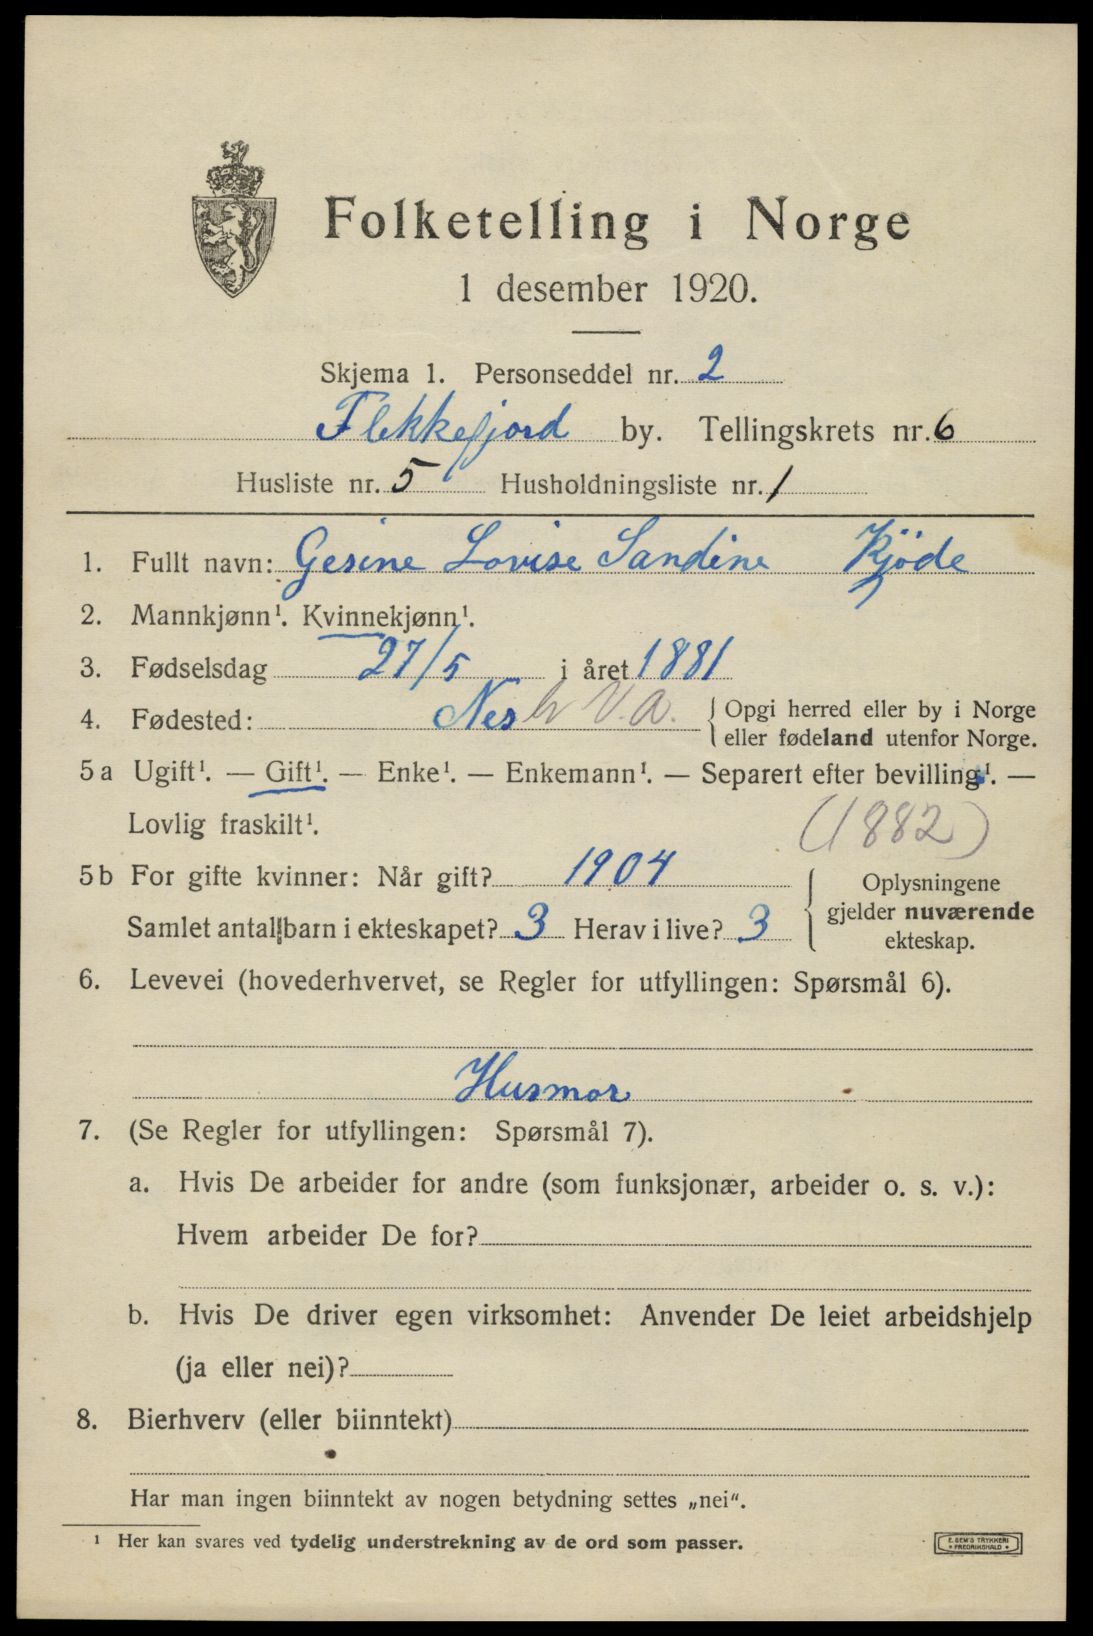 Folketelling i Norge
1 desember 1920.
Skjema 1. Personseddel nr. 2
Flekkefjord by. Tellingskrets nr. 6
Husliste nr. 5 Husholdningsliste nr. 1
1. Fullt navn: Gesine Lovise Sandine Kjöde
2. Mannkjønn¹. Kvinnekjønn¹.
3. Fødselsdag 27/5 i året 1881
4. Fødested: Nes h V.A. { Opgi herred eller by i Norge
eller fødeland utenfor Norge.
5 a Ugift¹. — Gift¹. — Enke¹. — Enkemann¹. — Separert efter bevilling¹. —
Lovlig fraskilt¹. (1882)
5 b For gifte kvinner: Når gift? 1904 { Oplysningene
gjelder nuværende
Samlet antal barn i ekteskapet? 3 Herav i live? 3
ekteskap.
6. Levevei (hovederhvervet, se Regler for utfyllingen: Spørsmål 6).
Husmor
7. (Se Regler for utfyllingen: Spørsmål 7).
a. Hvis De arbeider for andre (som funksjonær, arbeider o. s. v.):
Hvem arbeider De for?
b. Hvis De driver egen virksomhet: Anvender De leiet arbeidshjelp
(ja eller nei)?
8. Bierhverv (eller biinntekt)
Har man ingen biinntekt av nogen betydning settes „nei“.
¹ Her kan svares ved tydelig understrekning av de ord som passer.
E. SEM'S TRYKKERI
• FREDRIKSHALD •